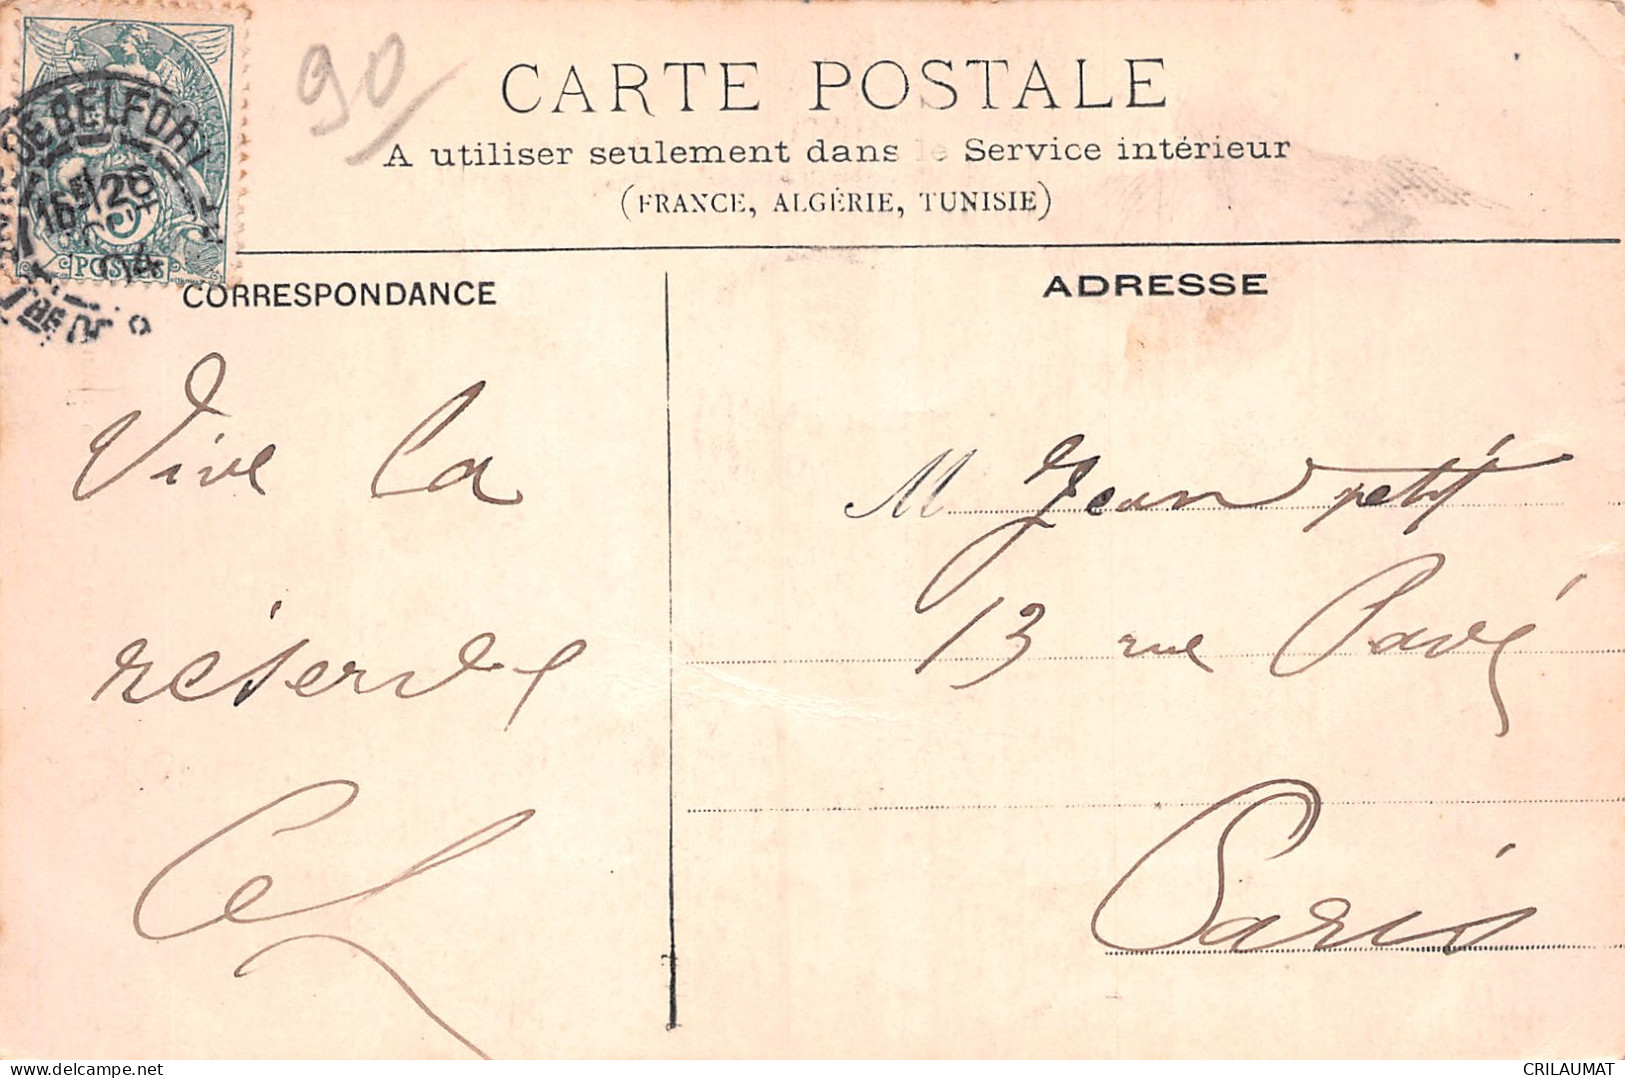 90
CARTE POSTALE
A utiliser seulement dans le Service intérieur
(FRANCE, ALGÉRIE, TUNISIE)
FRANÇAISE
DE BELFORT
16 12
04
5
POSTES
CORRESPONDANCE
ADRESSE
Vive la
réserve
M Jean petit
13 rue Pavé
Paris
CRILAUMAT